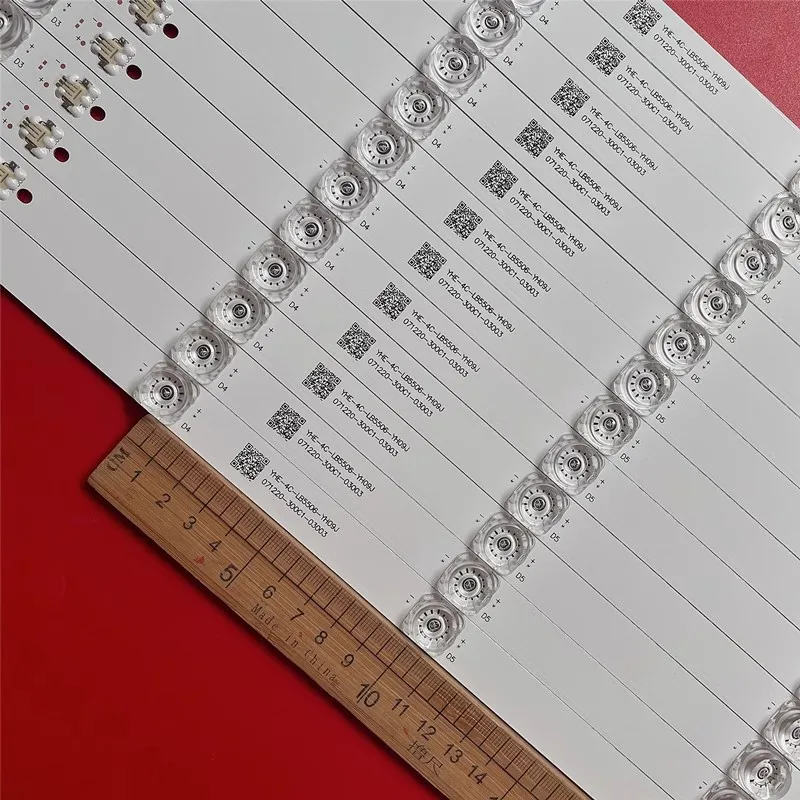 D3
D3
D4
D4
D4
D4
D4
D4
D4
D4
D4
YHE-4C-LB5506-YH09J
071220-300C1-03003
YHE-4C-LB5506-YH09J
071220-300C1-03003
YHE-4C-LB5506-YH09J
071220-300C1-03003
YHE-4C-LB5506-YH09J
071220-300C1-03003
YHE-4C-LB5506-YH09J
071220-300C1-03003
YHE-4C-LB5506-YH09J
071220-300C1-03003
YHE-4C-LB5506-YH09J
071220-300C1-03003
YHE-4C-LB5506-YH09J
071220-300C1-03003
YHE-4C-LB5506-YH09J
071220-300C1-03003
YHE-4C-LB5506-YH09J
071220-300C1-03003
YHE-4C-LB5506-YH09J
071220-300C1-03003
D5
D5
D5
D5
D5
D5
D5
D5
D5
CM
1 2 3 4 5 6 7 8 9 10 11 12 13 14
Made in China